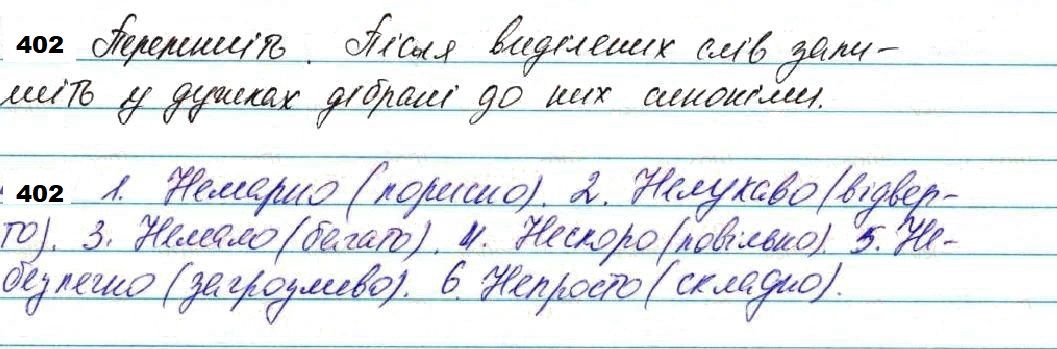 402 Перепишіть. Після виділених слів запи-
шіть у дужках дібрані до них синоніми.
402 1. Немарно (корисно). 2. Нелукаво (відвер-
то). 3. Немало (багато). 4. Нескоро (повільно). 5. Не-
безпечно (загрозливо). 6. Непросто (складно).